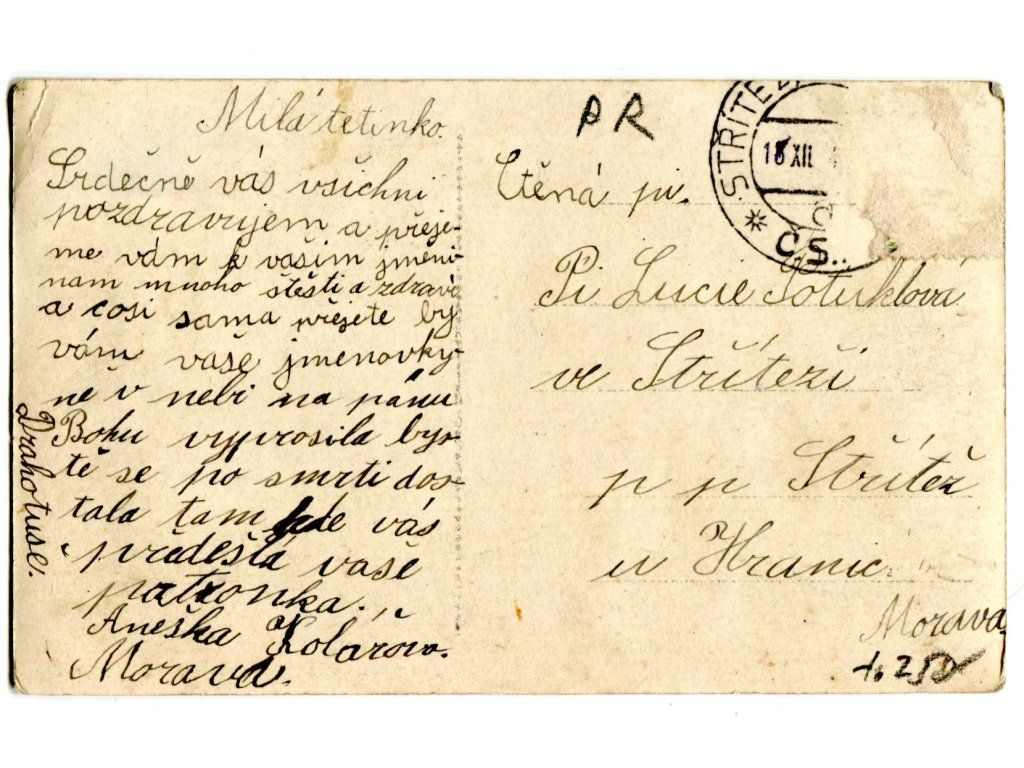 Milá tetinko.
Srdečně vás všichni
pozdravujem a přeje-
me vám k vašim jmeni-
nam mnoho štěsti a zdraví
a cosi sama přejete by
vám vaše jmenovky-
ně v nebi na pánu
Bohu vyprosila bys-
tě se po smrti dos-
tala tam kde vás
předešla vaše
patronka.
Aneška Kolářova.
Morava.
Drahotuše.
PR
STŘÍTEŽ
XII
ČS..
Ctěná pi.
Pi Lucie
ve Stříteži
p p Střítež
u Hranic
Morava